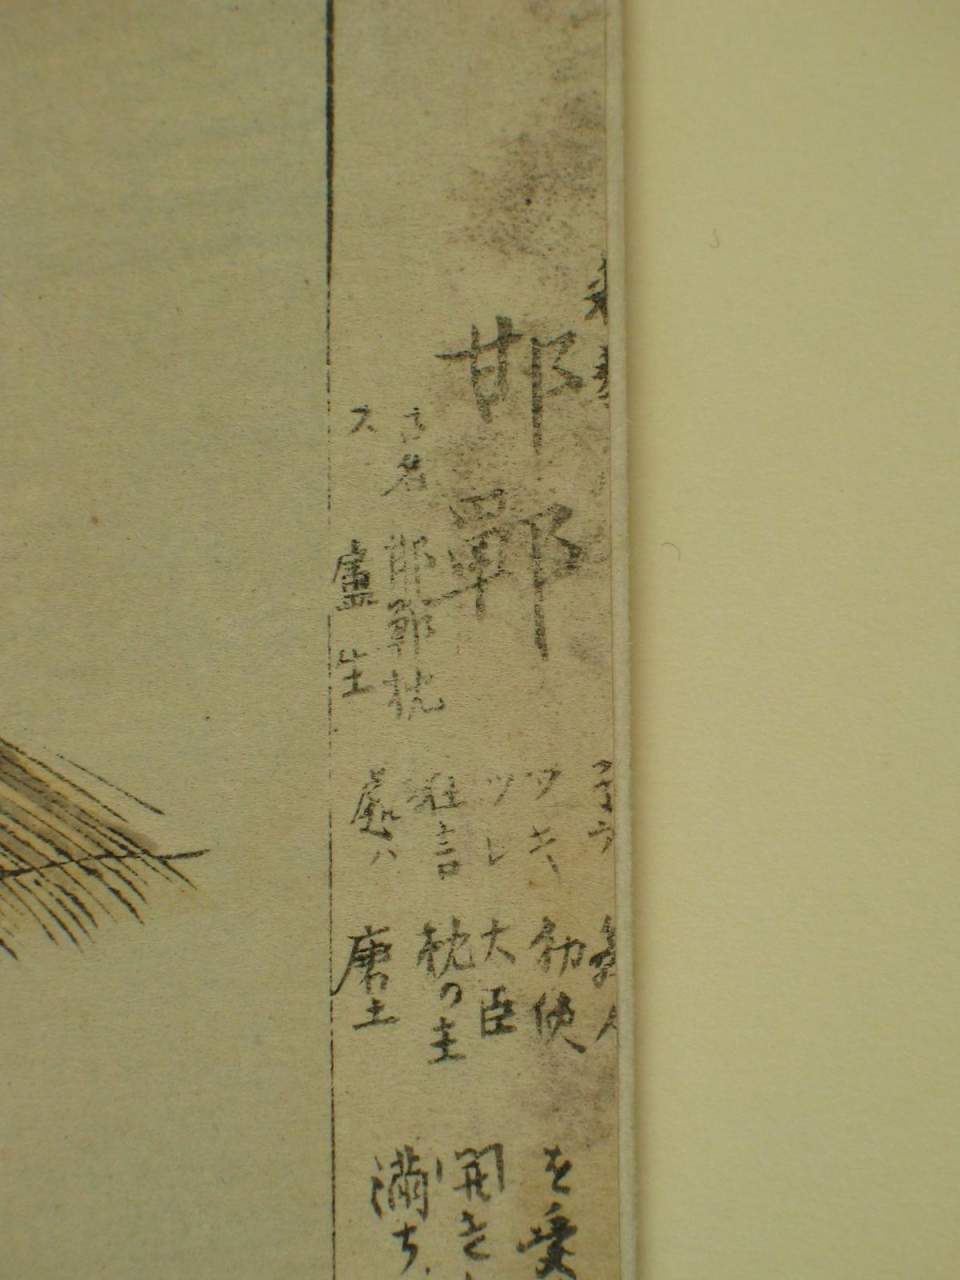 邯鄲
子方 舞人
ワキ 勅使
ツレ 大臣
狂言 枕の主
古名 邯鄲枕
盧生
處ハ 唐土
を受
開き
満ち